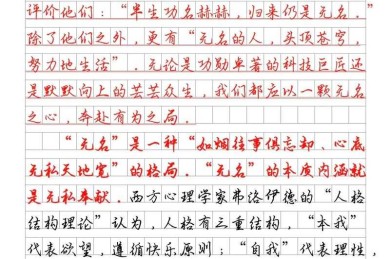 评价他们：“半生功名赫赫，归来仍是无名。”
除了他们之外，更有“无名的人，头顶苍穹，
努力地生活”。无论是功勋卓著的科技巨匠还
是默默向上的芸芸众生，我们都应以一颗无名
之心，奔赴有为之局。
“无名”是一种“如烟往事俱忘却、心底
无私天地宽”的格局。“无名”的本质内涵就
是无私奉献。西方心理学家弗洛伊德的“人格
结构理论”认为，人格有三重结构，“本我”
代表欲望，遵循快乐原则；“自我”代表理性，